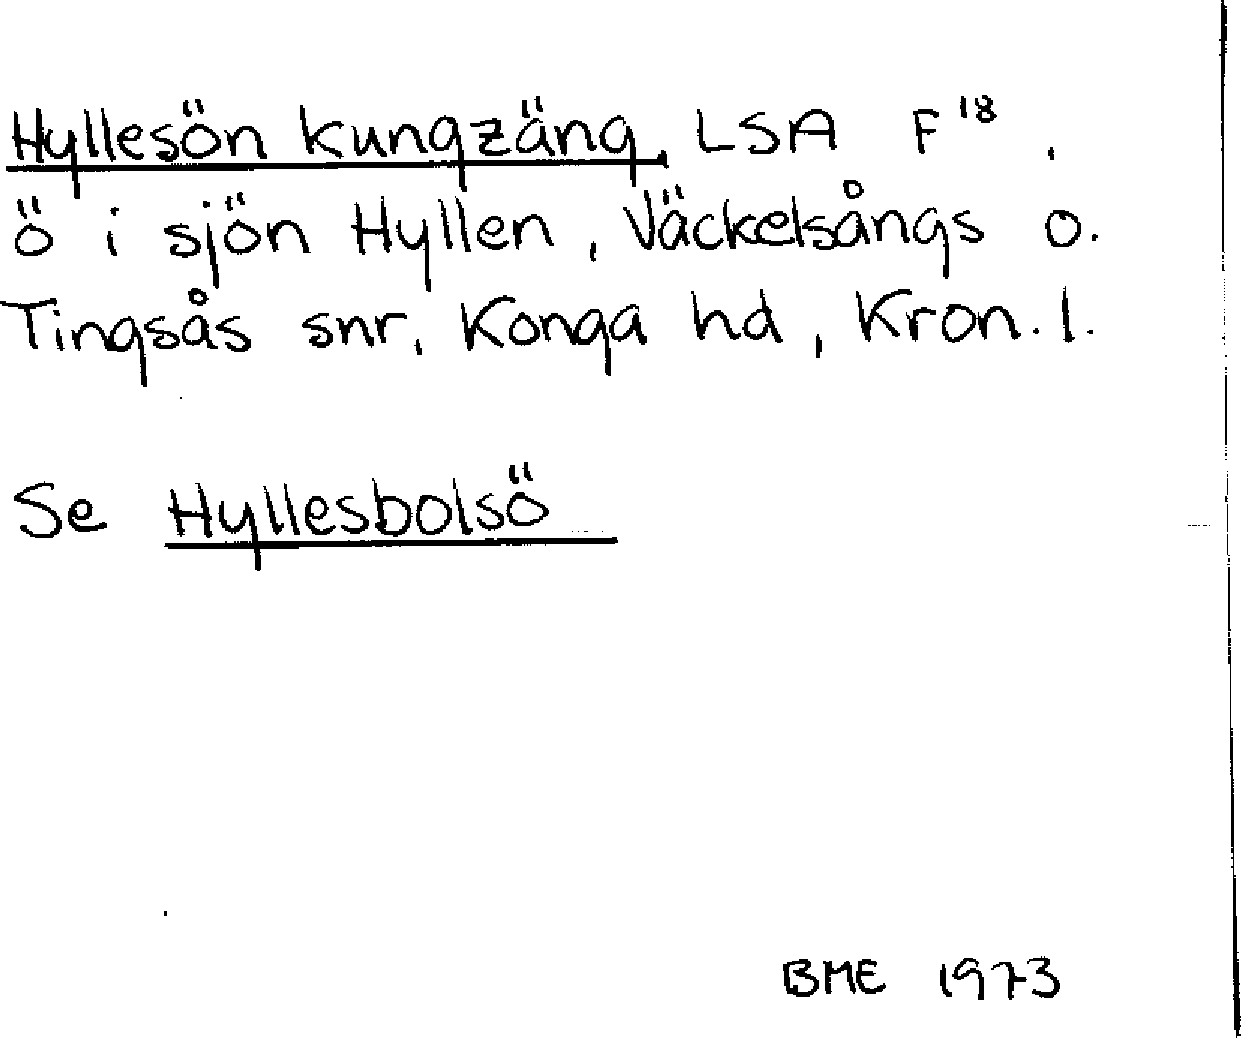 Hyllesön kungzäng, LSA F¹⁸,
ö i sjön Hyllen, Väckelsångs o.
Tingsås snr, Konga hd, Kron. l.
Se Hyllesbolsö
BME 1973